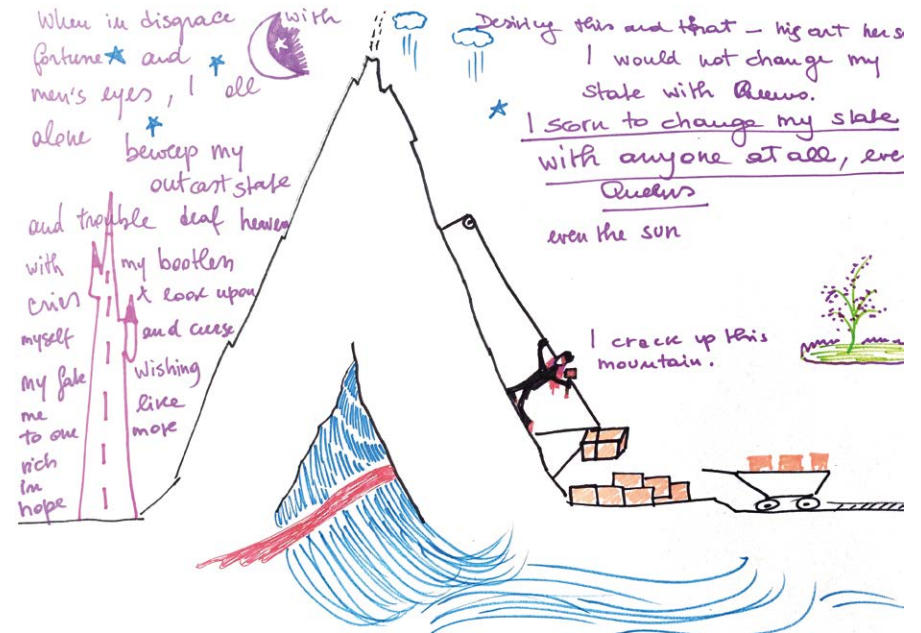 When in disgrace with
fortune and
men's eyes, I all
alone
beweep my
outcast state
and trouble deaf heaven
with my bootless
cries & look upon
myself and curse
my fate wishing
me like
to one more
rich
in
hope
Desiring this and that – his art her
I would not change my
state with Queens.
I scorn to change my state
with anyone at all, even
Queens
even the sun
I crack up this
mountain.